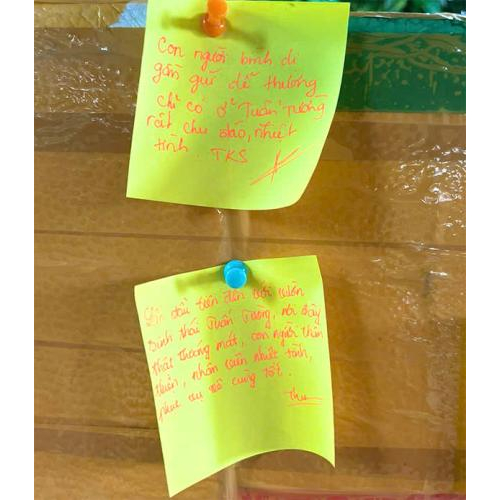 Con người bình dị
gần gũi dễ thương
chỉ có ở "Tuấn Tường
rất chu đáo, nhiệt
tình. TKS
Lần đầu tiên đến với vườn
sinh thái Tuấn Tường, nơi đây
thật thoáng mát, con người thân
thiện, nhân viên nhiệt tình,
phục vụ vô cùng tốt.
Thu